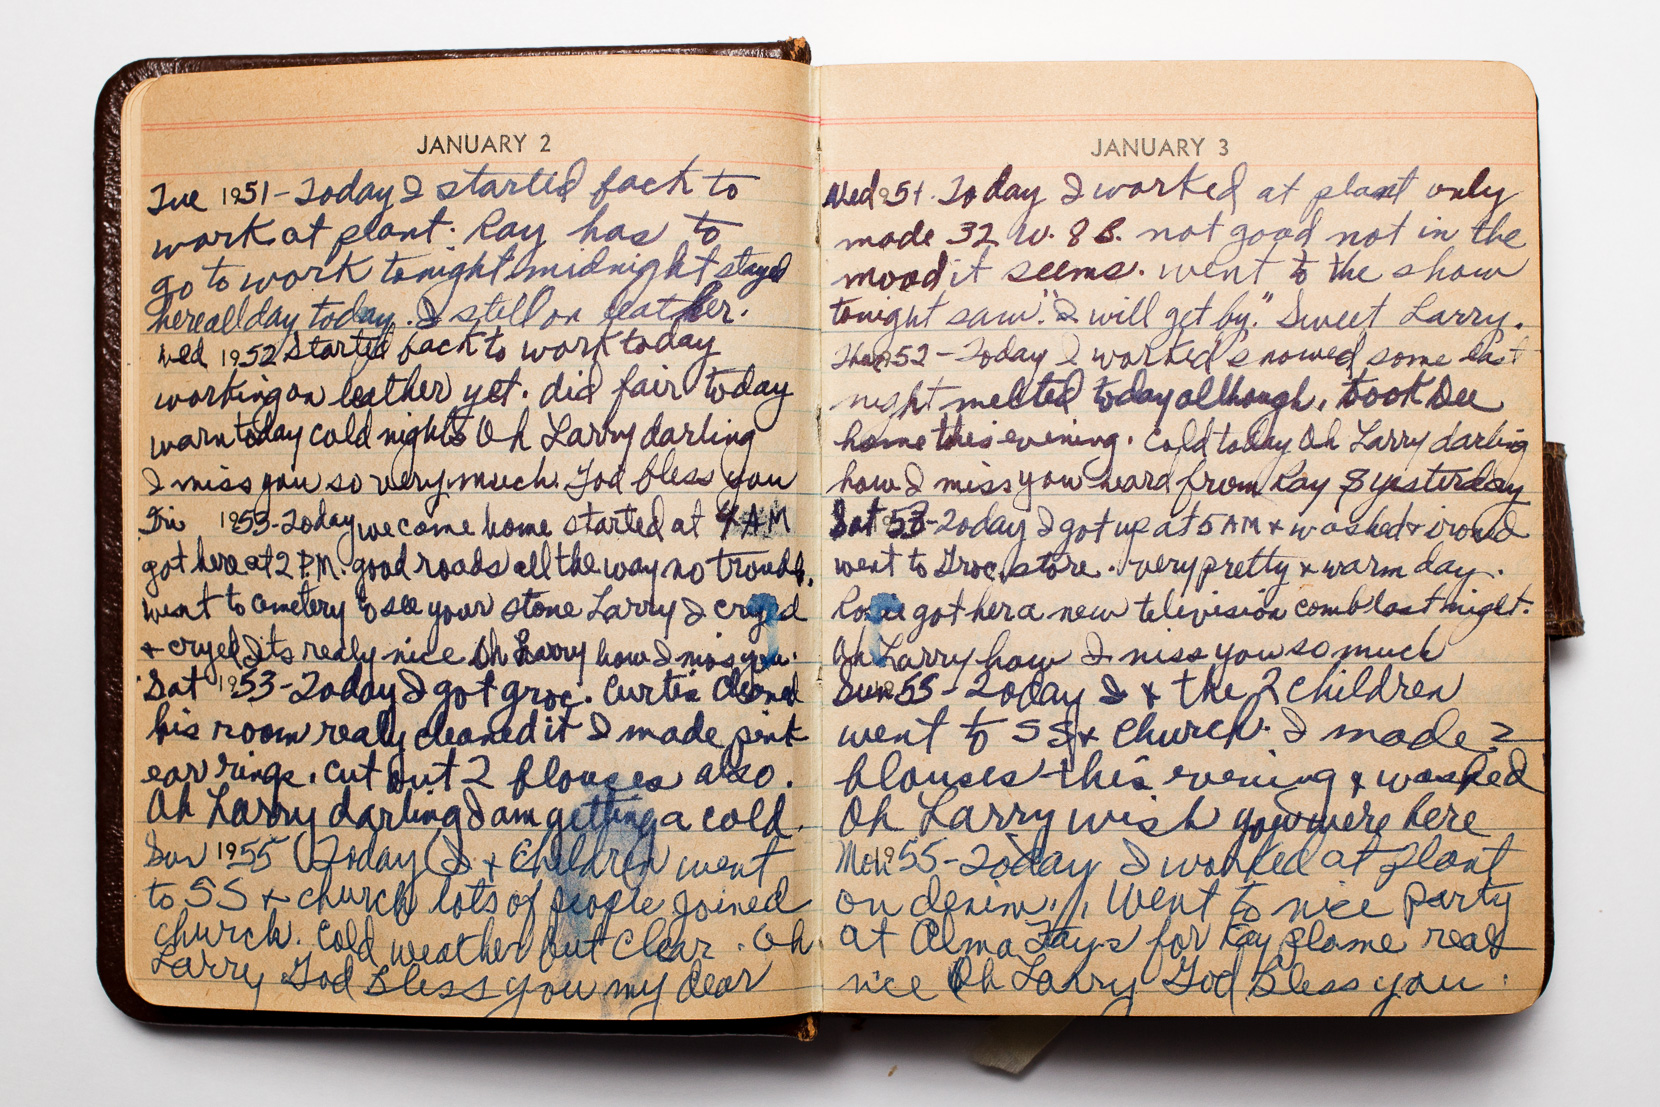 JANUARY 2
Tue 1951 - Today I started back to
work at plant. Ray has to
go to work tonight midnight stayed
here all day today. I still on leather.
Wed 1952 Started back to work today
working on leather yet. did fair today
warm today cold nights Oh Larry darling
I miss you so very much. God bless you
Fri 1953 - Today we come home started at 4 AM
got here at 2 P.M. good roads all the way no trouble.
went to cemetery to see your stone Larry I cryed
& cryed Its realy nice Oh Larry how I miss you.
Sat 1953 - Today I got groc. Curtis cleaned
his room realy cleaned it I made pink
ear rings. cut out 2 blouses also.
Oh Larry darling I am getting a cold.
Sun 1955 Today I & Children went
to SS & church lots of people joined
church. Cold weather but clear. Oh
Larry God Bless you my dear
JANUARY 3
Wed 1951. Today I worked at plant only
made 32 W. 8 B. not good not in the
mood it seems. went to the show
tonight saw. "I will get by." Sweet Larry.
Thur 1952 - Today I worked snowed some last
night melted today although. took Dee
home this evening. Cold today Oh Larry darling
how I miss you heard from Ray yesterday
Sat 53 - Today I got up at 5 AM & washed & ironed
went to Groc. store. very pretty & warm day.
got her a new television comb last night.
Oh Larry how I miss you so much
Sun 55 - Today I & the 2 children
went to SS & Church. I made 2
blouses this evening & washed
Oh Larry wish you were here
Mon 1955 - Today I worked at plant
on denim. Went to nice party
at Alma Fays for Kay
nice Oh Larry God Bless you.